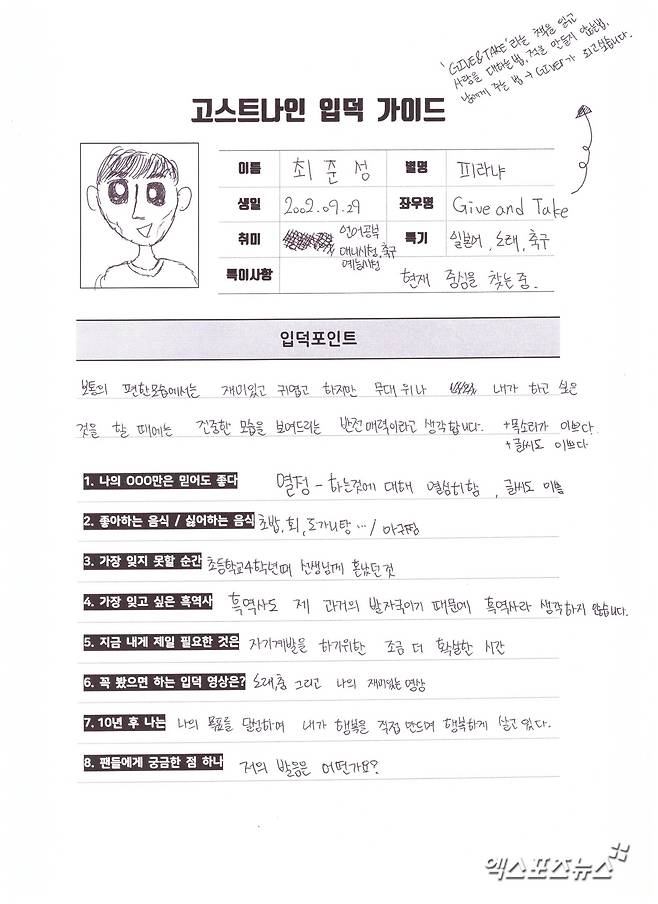 'GIVE&TAKE'라는 책을 읽고
사랑을 대하는법, 적을 만들지 않는법,
남에게 주는 법 → GIVER가 되고싶습니다.
고스트나인 입덕 가이드
이름 최준성 별명 피라냐
생일 2002.09.29 좌우명 Give and Take
취미 언어공부 애니시청, 축구 예능시청 특기 일본어, 노래, 축구
특이사항 현재 중심을 찾는 중.
입덕포인트
보통의 편한모습에서는 재미있고 귀엽고 하지만 무대위나 내가 하고 싶은
것을 할 때에는 진중한 모습을 보여드리는 반전매력이라고 생각합니다. +목소리가 이쁘다
+글씨도 이쁘다
1. 나의 OOO만은 믿어도 좋다 열정 - 하는것에 대해 열심히함, 글씨도 이쁨
2. 좋아하는 음식 / 싫어하는 음식 초밥, 회, 도가니탕 … / 아귀찜
3. 가장 잊지 못할 순간 초등학교 4학년때 선생님께 혼났던것
4. 가장 잊고 싶은 흑역사 흑역사도 제 과거의 발자국이기 때문에 흑역사라 생각하지 않습니다.
5. 지금 내게 제일 필요한 것은 자기계발을 하기위한 조금 더 확실한 시간
6. 꼭 봤으면 하는 입덕 영상은? 노래, 춤 그리고 나의 재미있는 영상
7. 10년 후 나는 나의 목표를 달성하여 내가 행복을 직접 만드며 행복하게 살고있다.
8. 팬들에게 궁금한 점 하나 저의 발음은 어떤가요?
엑스포츠뉴스